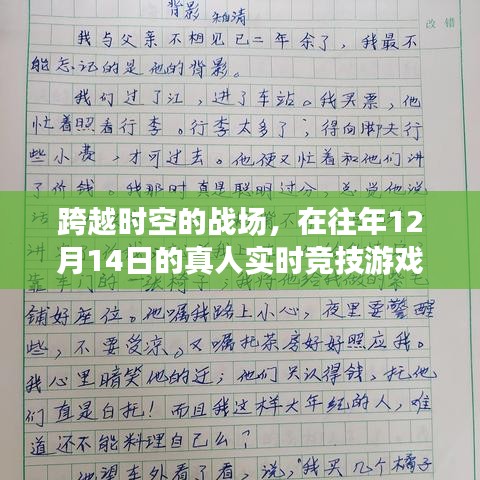 背影 朱自清
改错
我与父亲不相见已二年余了，我最不
能忘记的是他的背影。
我们过了江，进了车站。我买票，他
忙着照看行李。行李太多了；得向脚夫行
些小费，才可过去。他便又忙着和他们讲
了价钱。我那时真是聪明过分，总觉他说
话
跨越时空的战场，在往年12
月14日的真人实时竞技游戏
铺好座位。他嘱我路上小心，夜里要警醒
些，不要受凉。又嘱托茶房好好照应我。
我心里暗笑他的迂；他们只认得钱，托他
们直是白托！而且我这样大年纪的人，难
道还不能料理自己么？
他望车外看了看，说，“我买几个橘子